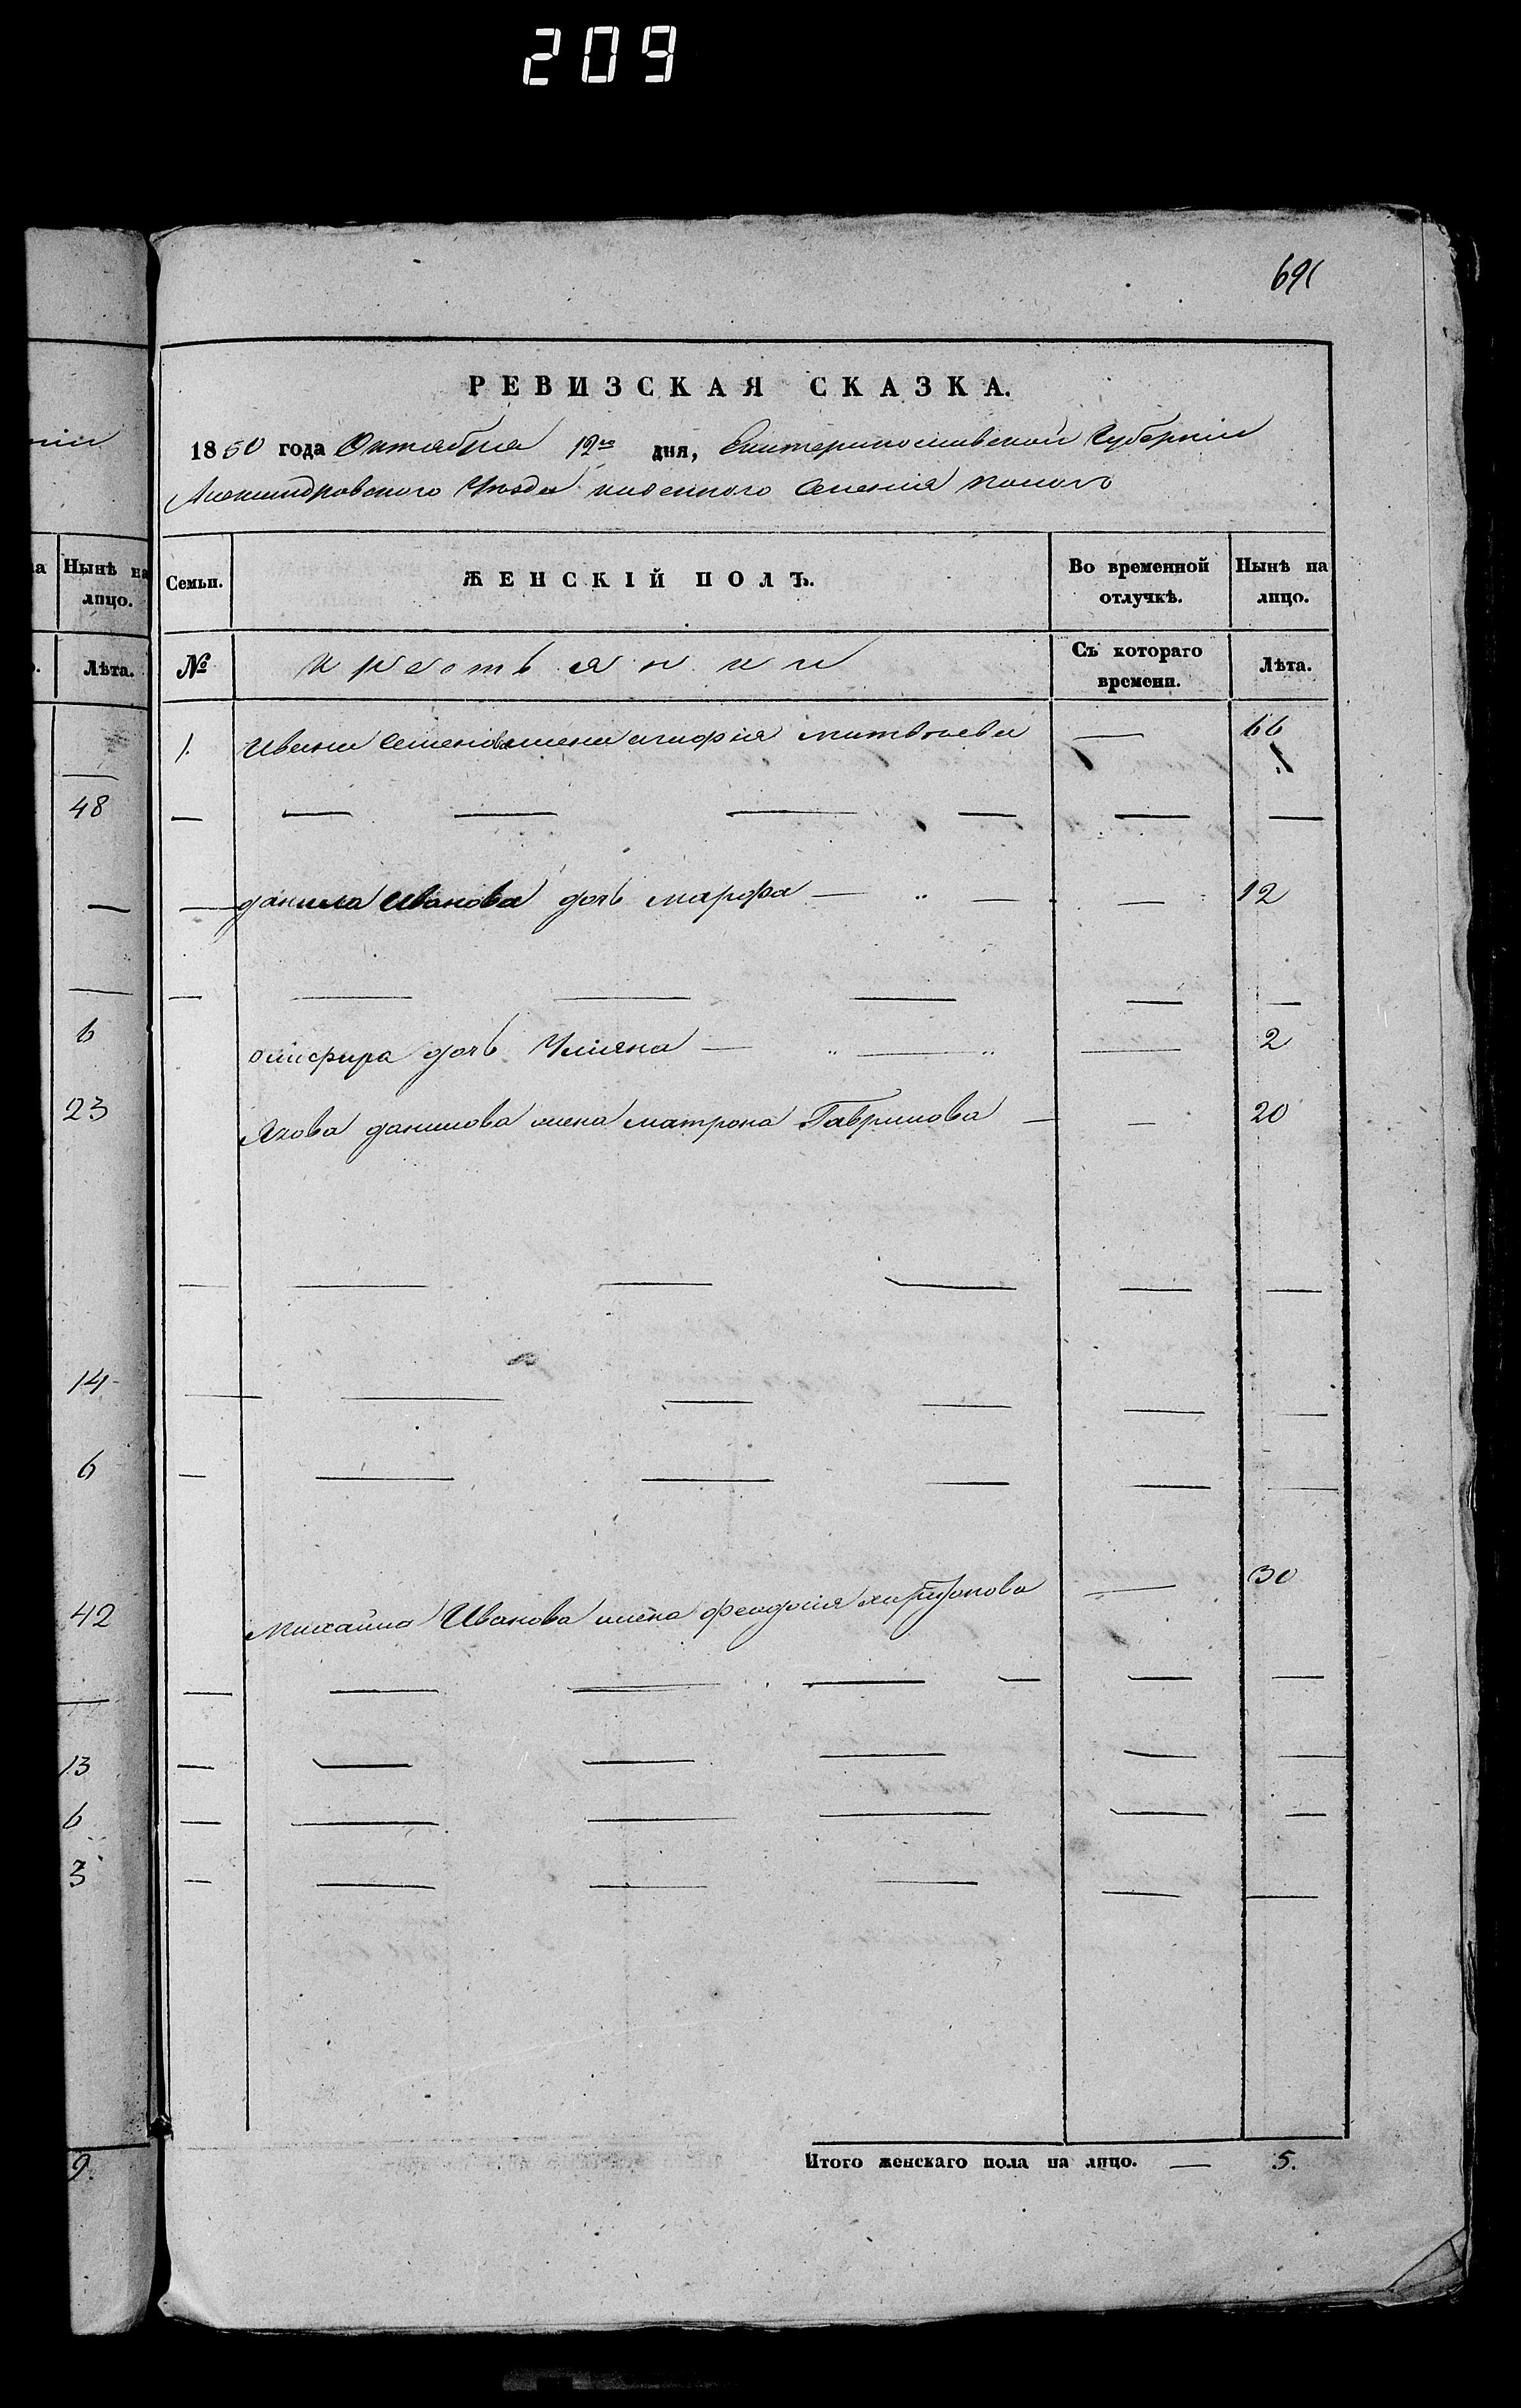 209
691
нiи
РЕВИЗСКАЯ СКАЗКА.
1850 года Октября 12го дня, Екатеринославской Губернiи
Александровского Уезда казенного Селенiя
на Нынѣ на лицо.
Семьи.
ЖЕНСКIЙ ПОЛЪ.
Во временной отлучкѣ.
Нынѣ на лицо.
Лѣта.
№
крестьянки
Съ котораго времени.
Лѣта.
1. Ивана Семенова жена агафiя матвѣева — 66
48 — — — — — — —
— — данила Иванова дочь марфа — „ — — 12
— — — — — — —
6 онисфира дочь Улiяна — „ — „ — 2
23 Якова данилова жена матрона Гаврилова — — 20
— — — — — —
14 — — — — — —
6 — — — — — —
42 михайла Иванова жена феодосiя харитонова — 30
— — — — — — — —
13 — — — — — —
6 — — — — — —
3 — — — — — —
9. Итого женскаго пола на лицо. — 5.